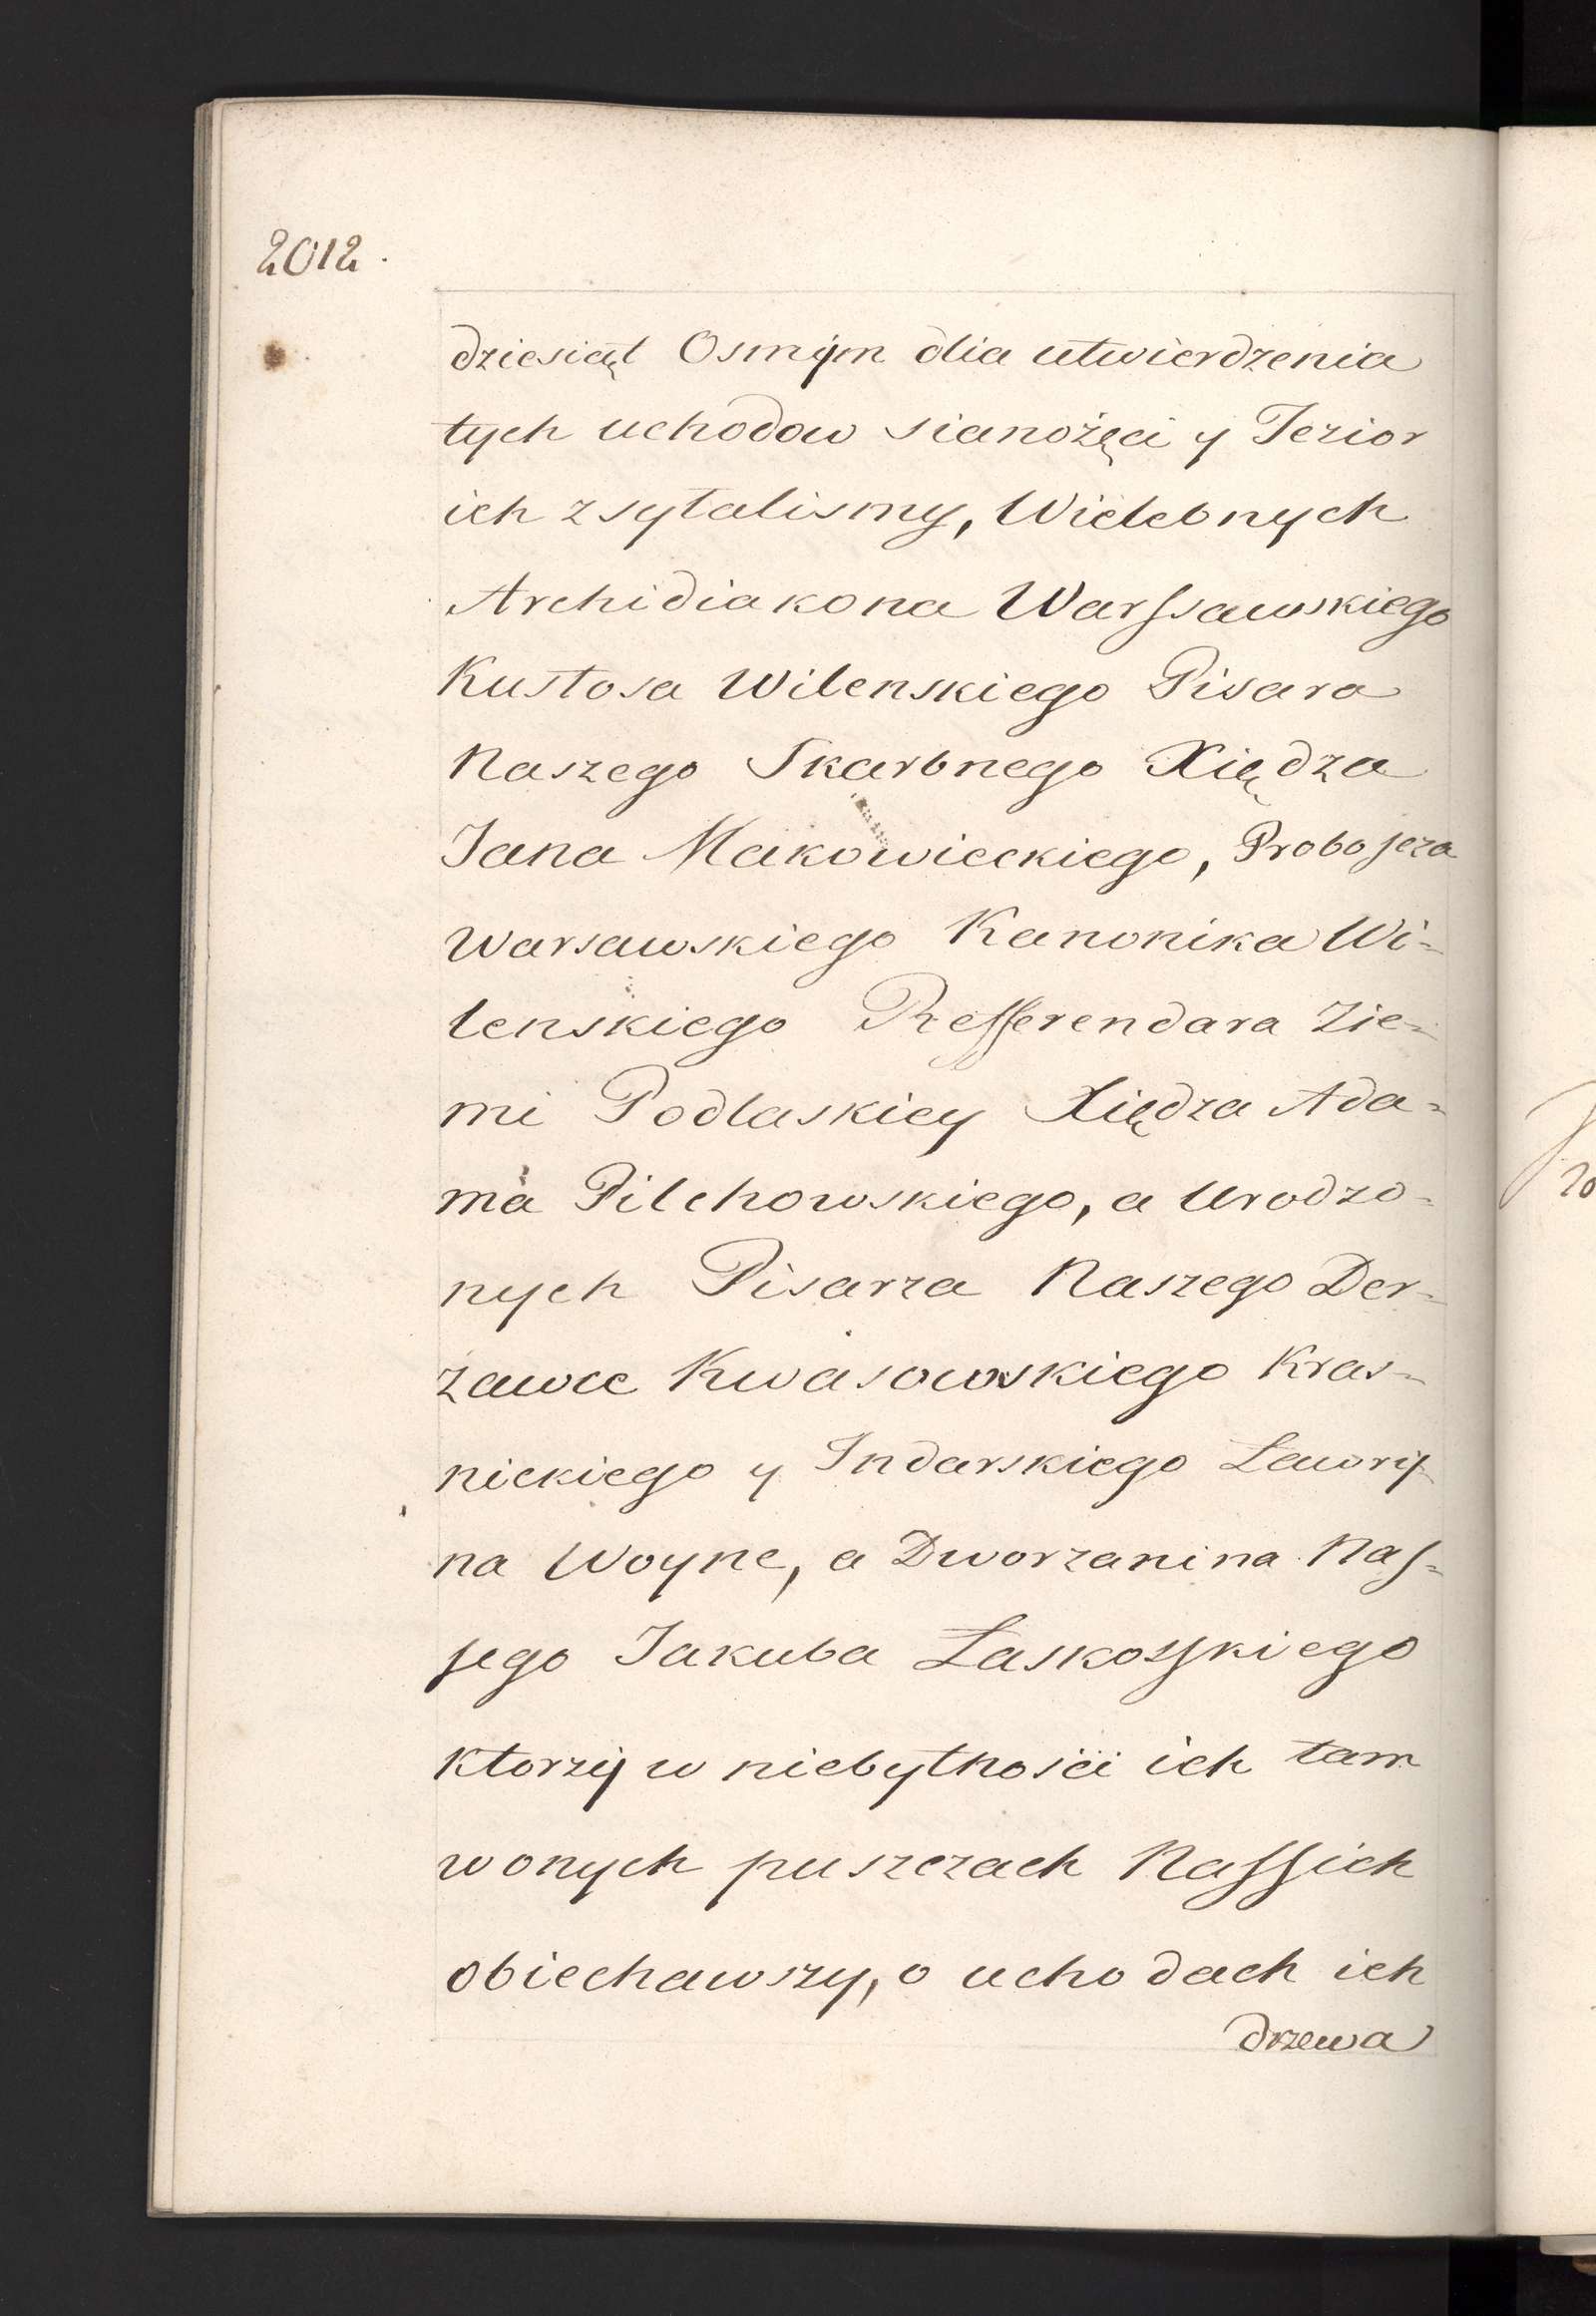 2012.
dziesiąt Osmym dlia utwierdzenia
tych uchodow sianożęci y Jezior
ich zsylalismy, Wielebnych
Archidiakona Warssawskiego
Kustosa Wilenskiego Pisara
Naszego Skarbnego Xiędza
Jana Makowieckiego, Proboscza
Warsawskiego Kanonika Wi=
lenskiego Refferendara Zie=
mi Podlaskiey Xiędza Ada=
ma Pilchowskiego, a Urodzo=
nych Pisarza Naszego Der=
zawce Kwasowskiego Kras=
nickiego y Indarskiego Ławry=
na Woyne, a Dworzanina Nas=
sego Jakuba Łaskowskiego
Ktorzy w niebytnosci ich tam
wonych puszczach Nassich
obiechawszy, o uchodach ich
drzewa